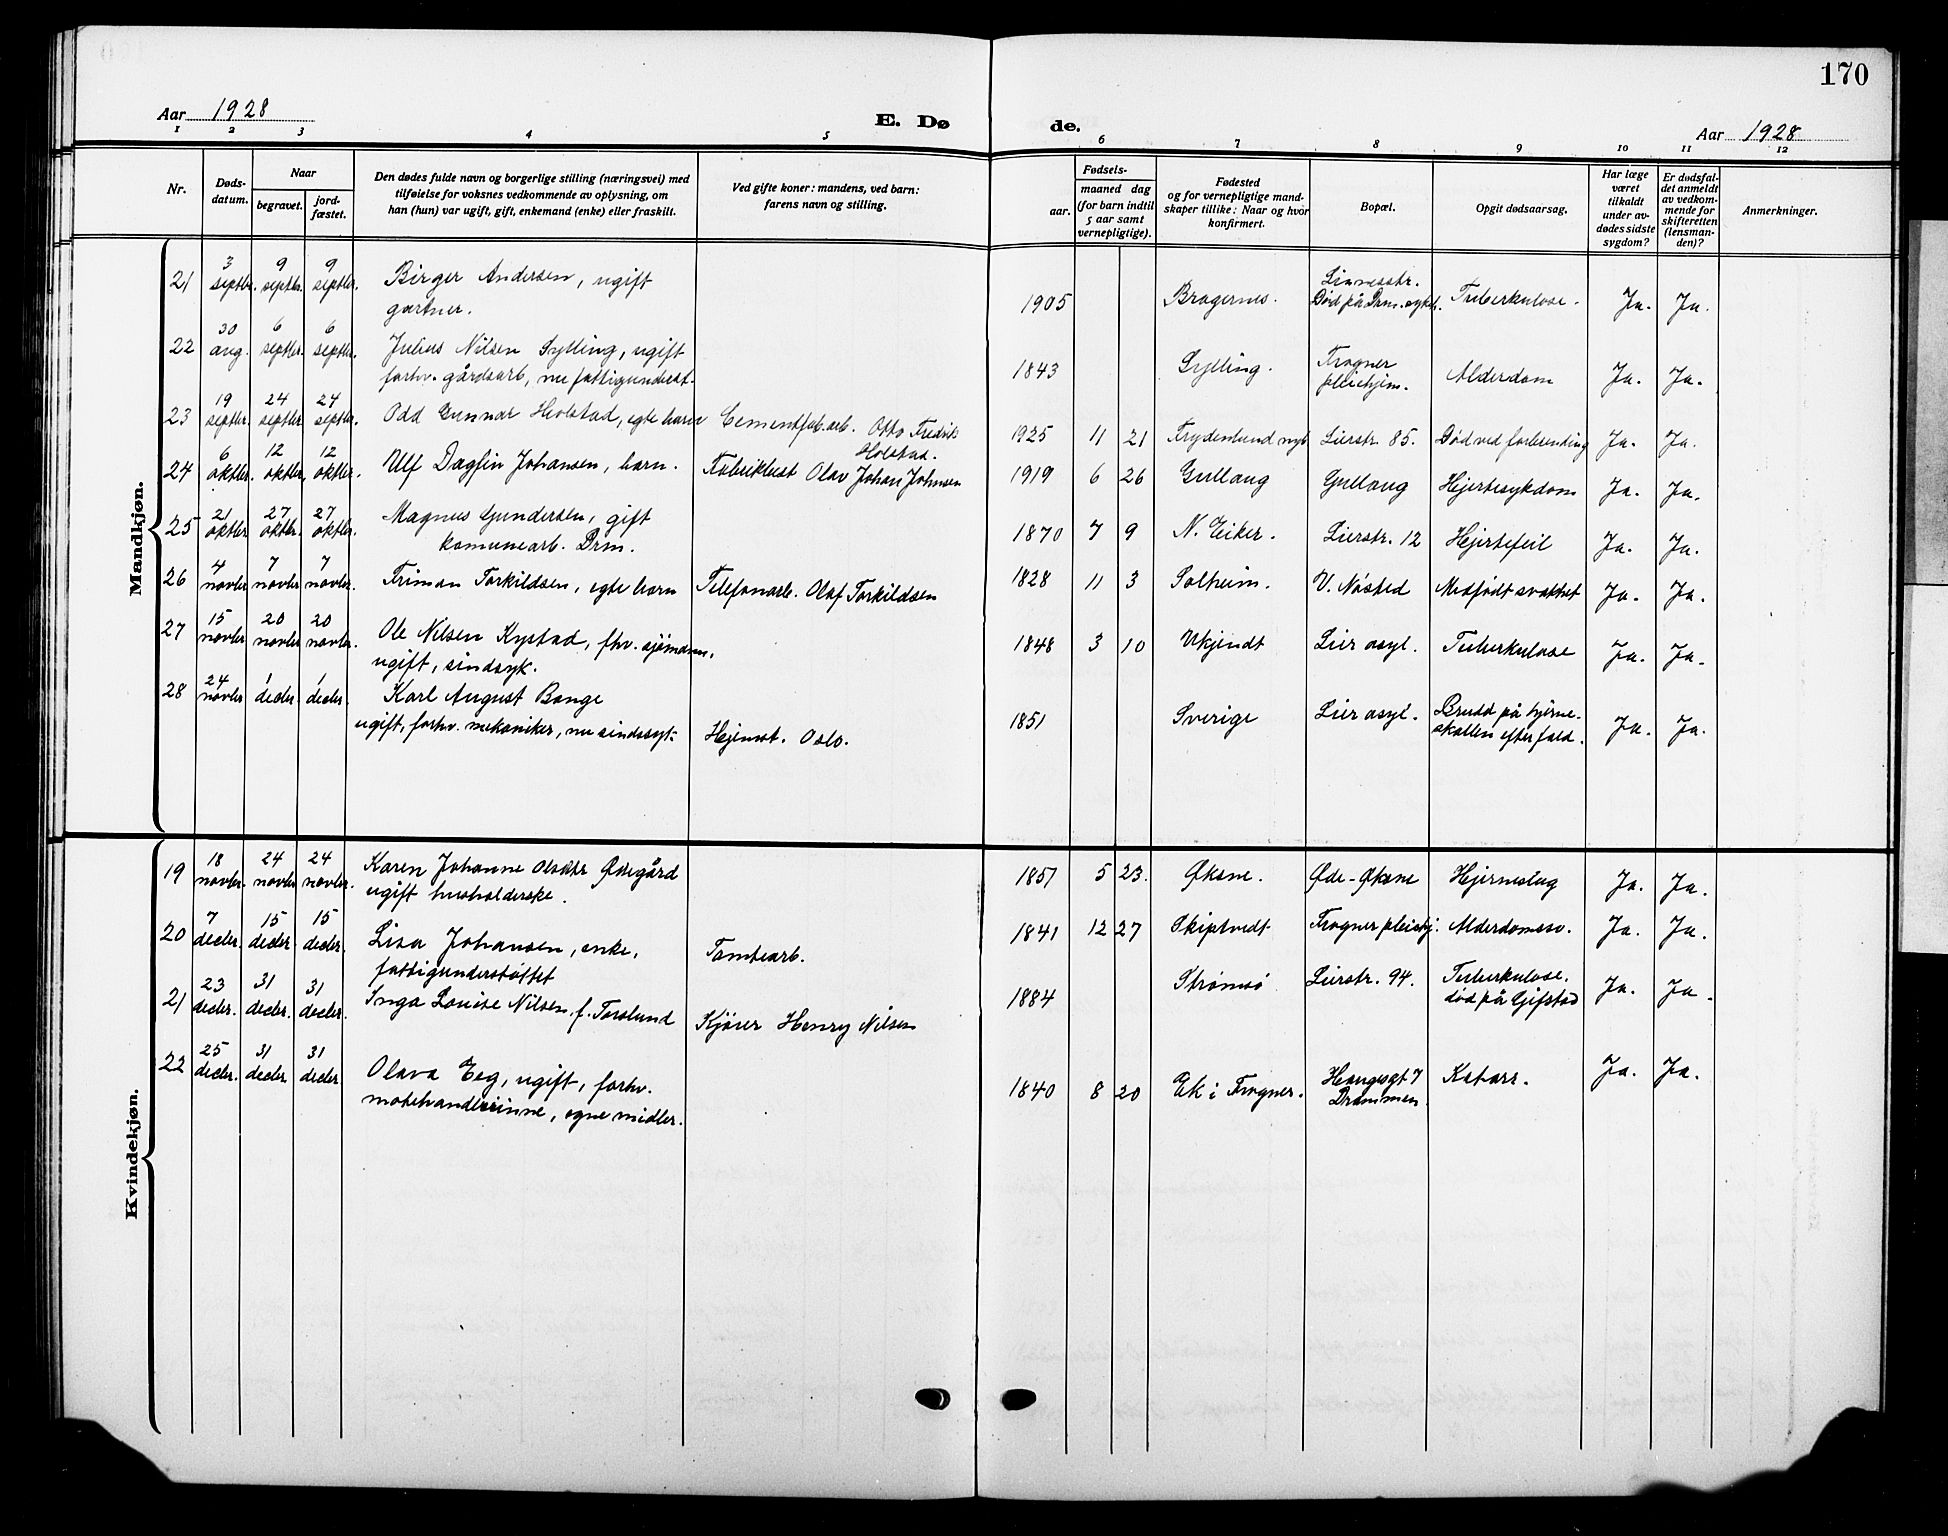 170
Aar 1928
E. Dø
de.
Aar 1928
1 2 3 4 5 6 7 8 9 10 11 12
Nr.
Døds-
datum.
Naar
begravet.
jord-
fæstet.
Den dødes fulde navn og borgerlige stilling (næringsvei) med
tilføielse for voksnes vedkommende av oplysning, om
han (hun) var ugift, gift, enkemand (enke) eller fraskilt.
Ved gifte koner: mandens, ved barn:
farens navn og stilling.
Fødsels-
aar.
maaned dag
(for barn indtil
5 aar samt
vernepligtige).
Fødested
og for vernepligtige mand-
skaper tillike: Naar og hvor
konfirmert.
Bopæl.
Opgit dødsaarsag.
Har læge
været
tilkaldt
under av-
dødes sidste
sygdom?
Er dødsfal-
det anmeldt
av vedkom-
mende for
skifteretten
(lensman-
den)?
Anmerkninger.
Mandkjøn.
21 3 septbr. 9 septbr. 9 septbr. Birger Andersen, ugift
gartner.
1905 Bragernes. Død på Dram. sykeh. Tuberkulose. Ja. Ja.
22 30 aug. 6 septbr. 6 septbr. Julius Nilsen Sylling, ugift
forhv. gårdsarb, nu fattigunderst.
1843 Sylling. Frogner
pleiehjem. Alderdom Ja. Ja.
23 19 septbr. 24 septbr. 24 septbr. Odd Gunnar Holstad, egte barn Cementfab.arb. Otto Fredrik
Holstad.
1925 11 21 Frydenlund nyb Lierstr. 85. Død ved forbrending Ja. Ja.
24 6 oktbr. 12 oktbr. 12 oktbr. Ulf Dagfin Johansen, barn. Fabrikbest Olav Johan Johnsen
1919 6 26 Gullaug Gullaug Hjertesykdom Ja. Ja.
25 21 oktbr 27 oktbr. 27 oktbr. Magnus Gundersen, gift
komunearb. Drm.
1870 7 9 N. Eiker. Lierstr. 12 Hjertefeil Ja. Ja.
26 4 novbr 7 novbr 7 novbr. Friman Torkildsen, egte barn Telefonarb. Olaf Torkildsen
1828 11 3 Solheim. V. Nøsted Medfødt svakhet Ja. Ja.
27 15 novbr 20 novbr 20 novbr. Ole Nilsen Kystad, fhv. sjømdmn.
ugift, sindsyk.
1848 3 10 Ukjendt Lier asyl. Tuberkulose Ja. Ja.
28 24 novbr 1 decbr. 1 decbr. Karl August Bange
ugift, forhv. mekaniker, nu sindssyk Hejemst. Oslo.
1851 Sverige Lier asyl. Brudd på hjerne-
skallen efter fald. Ja. Ja.
Kvindekjøn.
19 18 novbr. 24 novbr 24 novbr. Karen Johanne Olsdtr Ødegård
ugift husholderske.
1851 5 23. Øksne. Øde-Øksne Hjerneslag Ja. Ja.
20 7 decbr. 15 decbr. 15 decbr. Lisa Johansen, enke,
fattigunderstøttet Tomtearb.
1841 12 27 Skiptvedt Frogner pleiehj. Alderdomssv. Ja. Ja.
21 23 decbr. 31 decbr. 31 decbr. Inga Louise Nilsen, f. Torslund Kjører Henry Nilsen
1884 Strømsø Lierstr. 94. Tuberkulose.
død på Gifstad Ja. Ja.
22 25 decbr. 31 decbr. 31 decbr Olava Eeg, ugift, forhv.
motehandlerinne, egne midler.
1840 8 20 Ek i Frogner. Haugesgt 7
Drammen. Katarr. Ja. Ja.